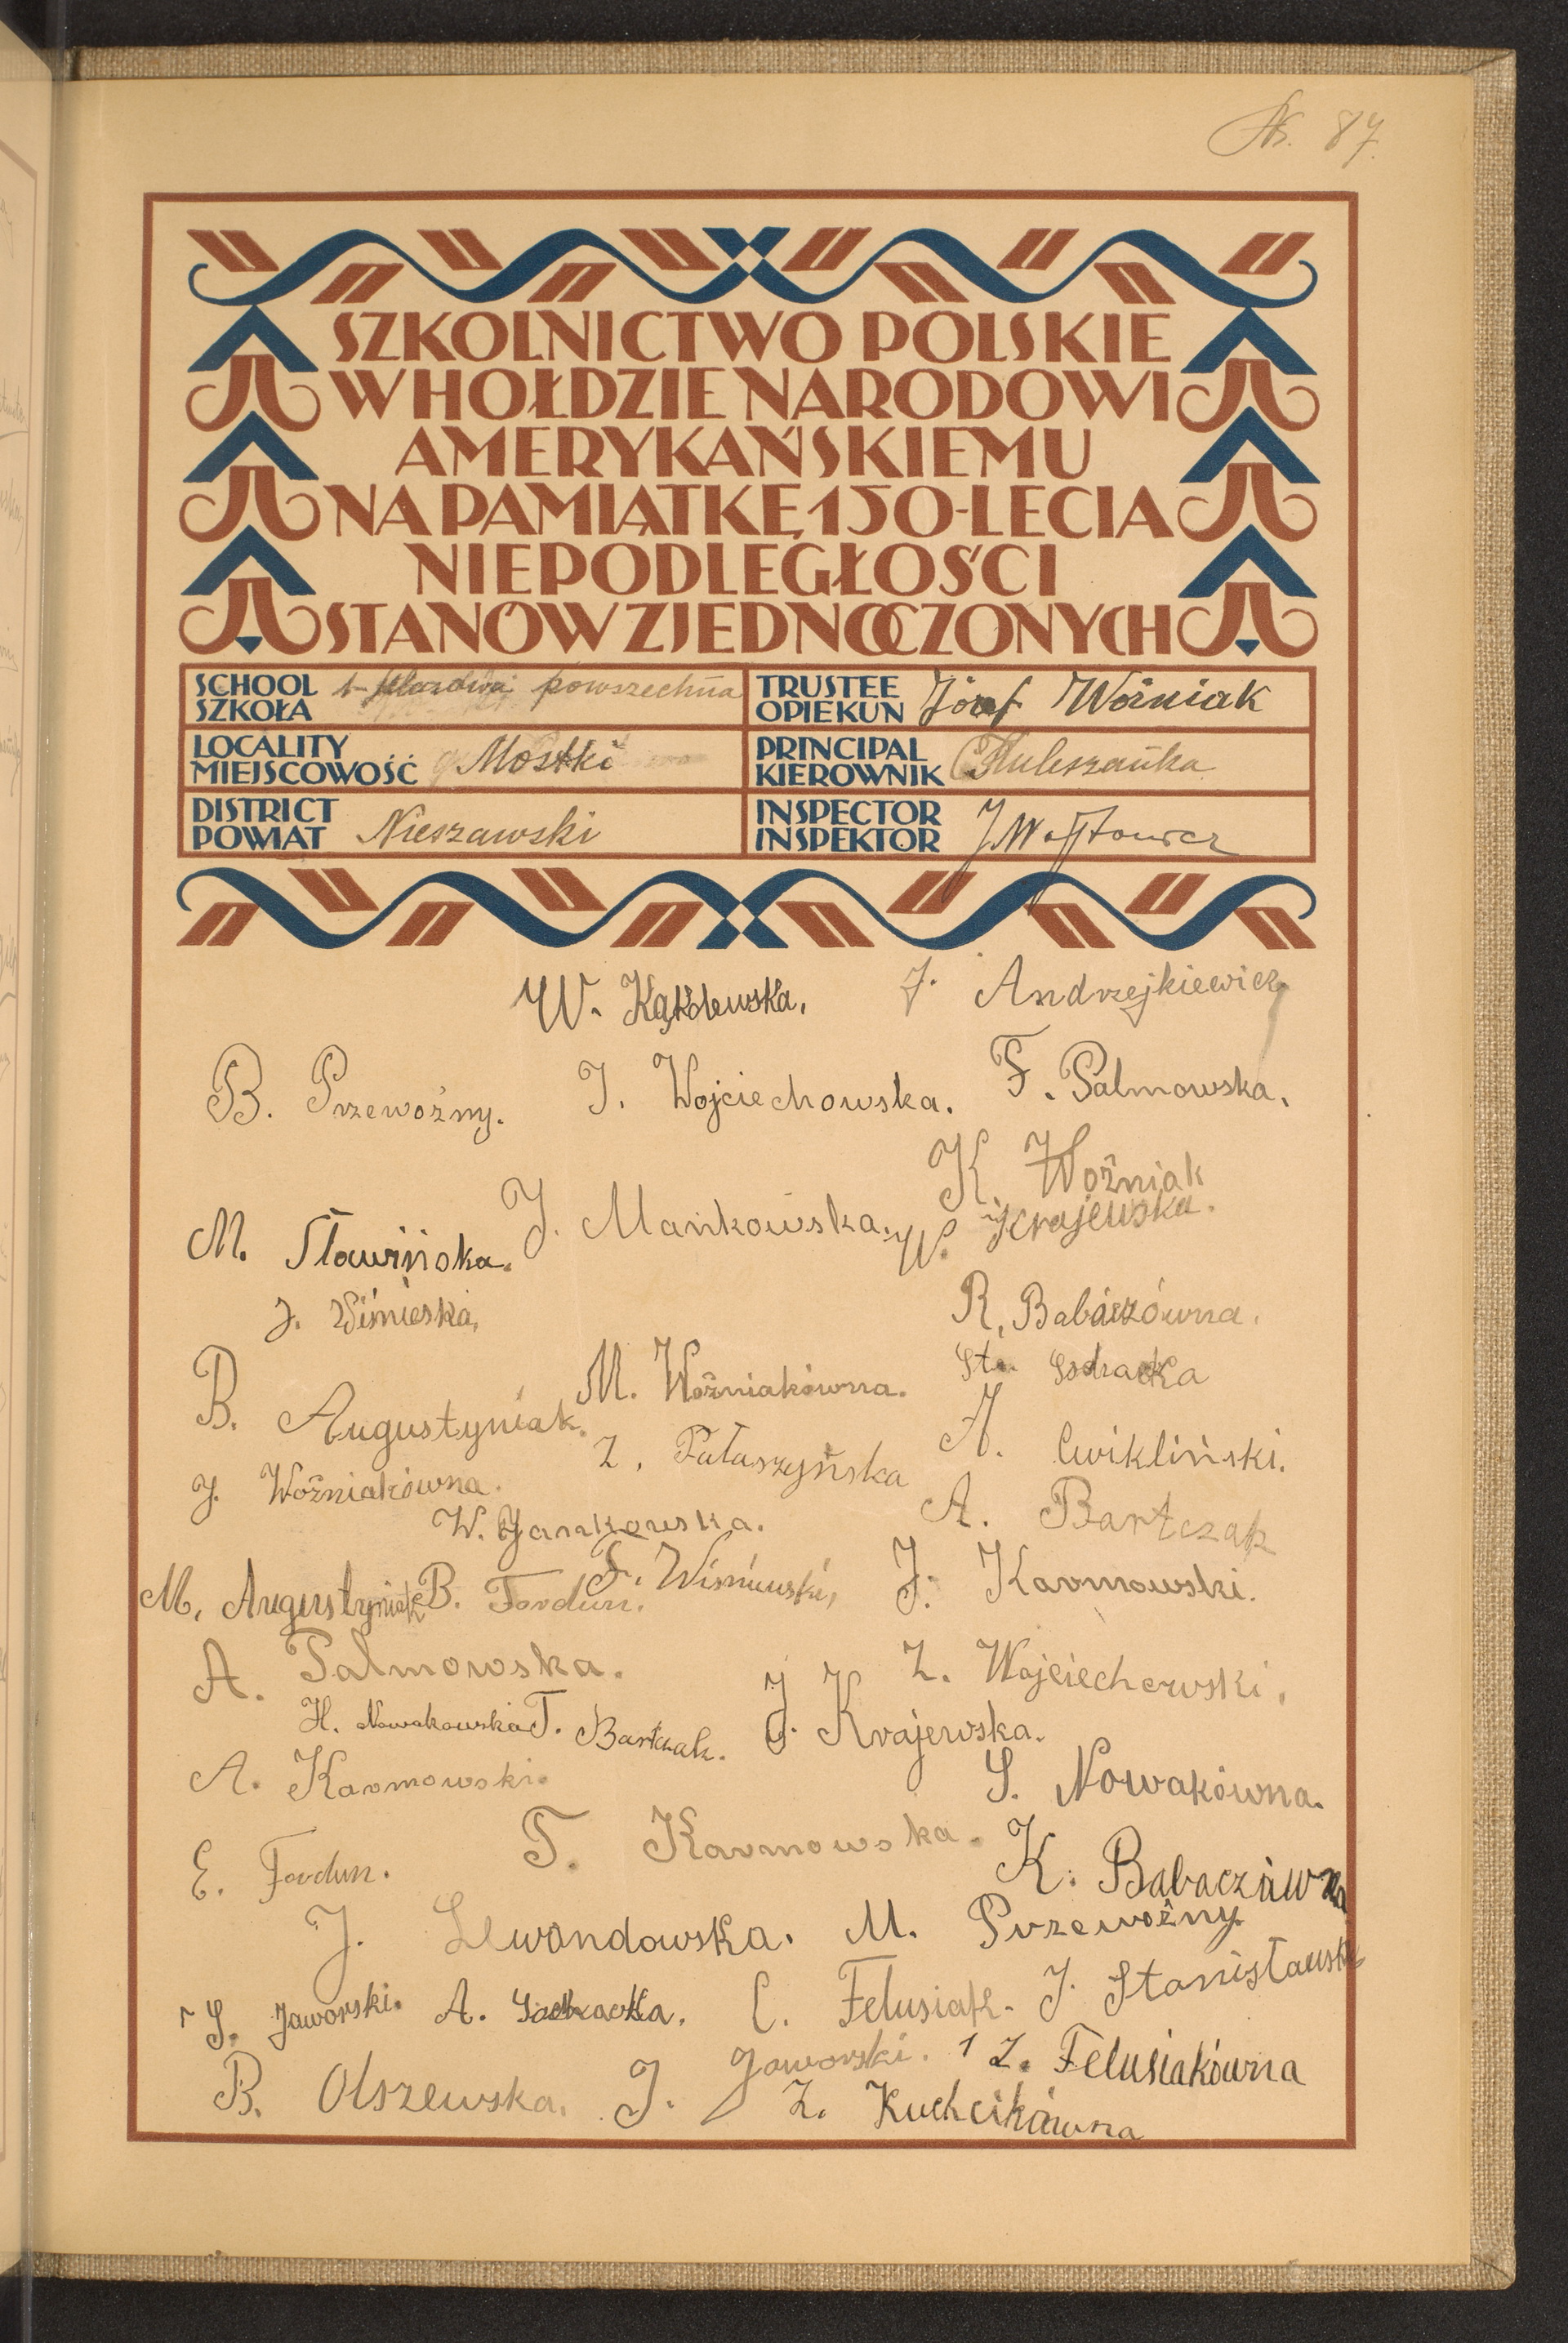 No. 87.
SZKOLNICTWO POLSKIE
W HOŁDZIE NARODOWI
AMERYKAŃSKIEMU
NA PAMIĄTKĘ 150-LECIA
NIEPODLEGŁOŚCI
STANÓW ZJEDNOCZONYCH
SCHOOL SZKOŁA 1-klasowa powszechna
TRUSTEE OPIEKUN Józef Woźniak
LOCALITY MIEJSCOWOŚĆ Mostki
PRINCIPAL KIEROWNIK Kuleszanka
DISTRICT POWIAT Nieszawski
INSPECTOR INSPEKTOR
W. Kąkolewska. J. Andrzejkiewicz
B. Przewoźny. J. Wojciechowska. F. Palmowska.
K. Woźniak
M. Sławińska. J. Mańkowska. W. Krajewska.
J. Wiśnieska. R. Babaczówna.
B. Augustyniak. M. Woźniakówna. St.
J. Woźniakówna. Z. Pałaszyńska A. Cwikliński.
W. Jankowska. A. Bartczak
M. Augustyniak B. Fordun. F. Wiśniewski, J. Karmowski.
A. Palmowska. Z. Wojciechowski.
H. Nowakowska T. Bartczak. J. Krajewska.
A. Karmowski. S. Nowakówna.
E. Fordun. T. Karmowska. K. Babaczówna
J. Lewandowska. M. Przewoźny.
S. Jaworski. A. C. Felusiak. J. Stanisławski
B. Olszewska. J. Jaworski. 1 Z. Felusiakówna
Z. Kuchcikówna